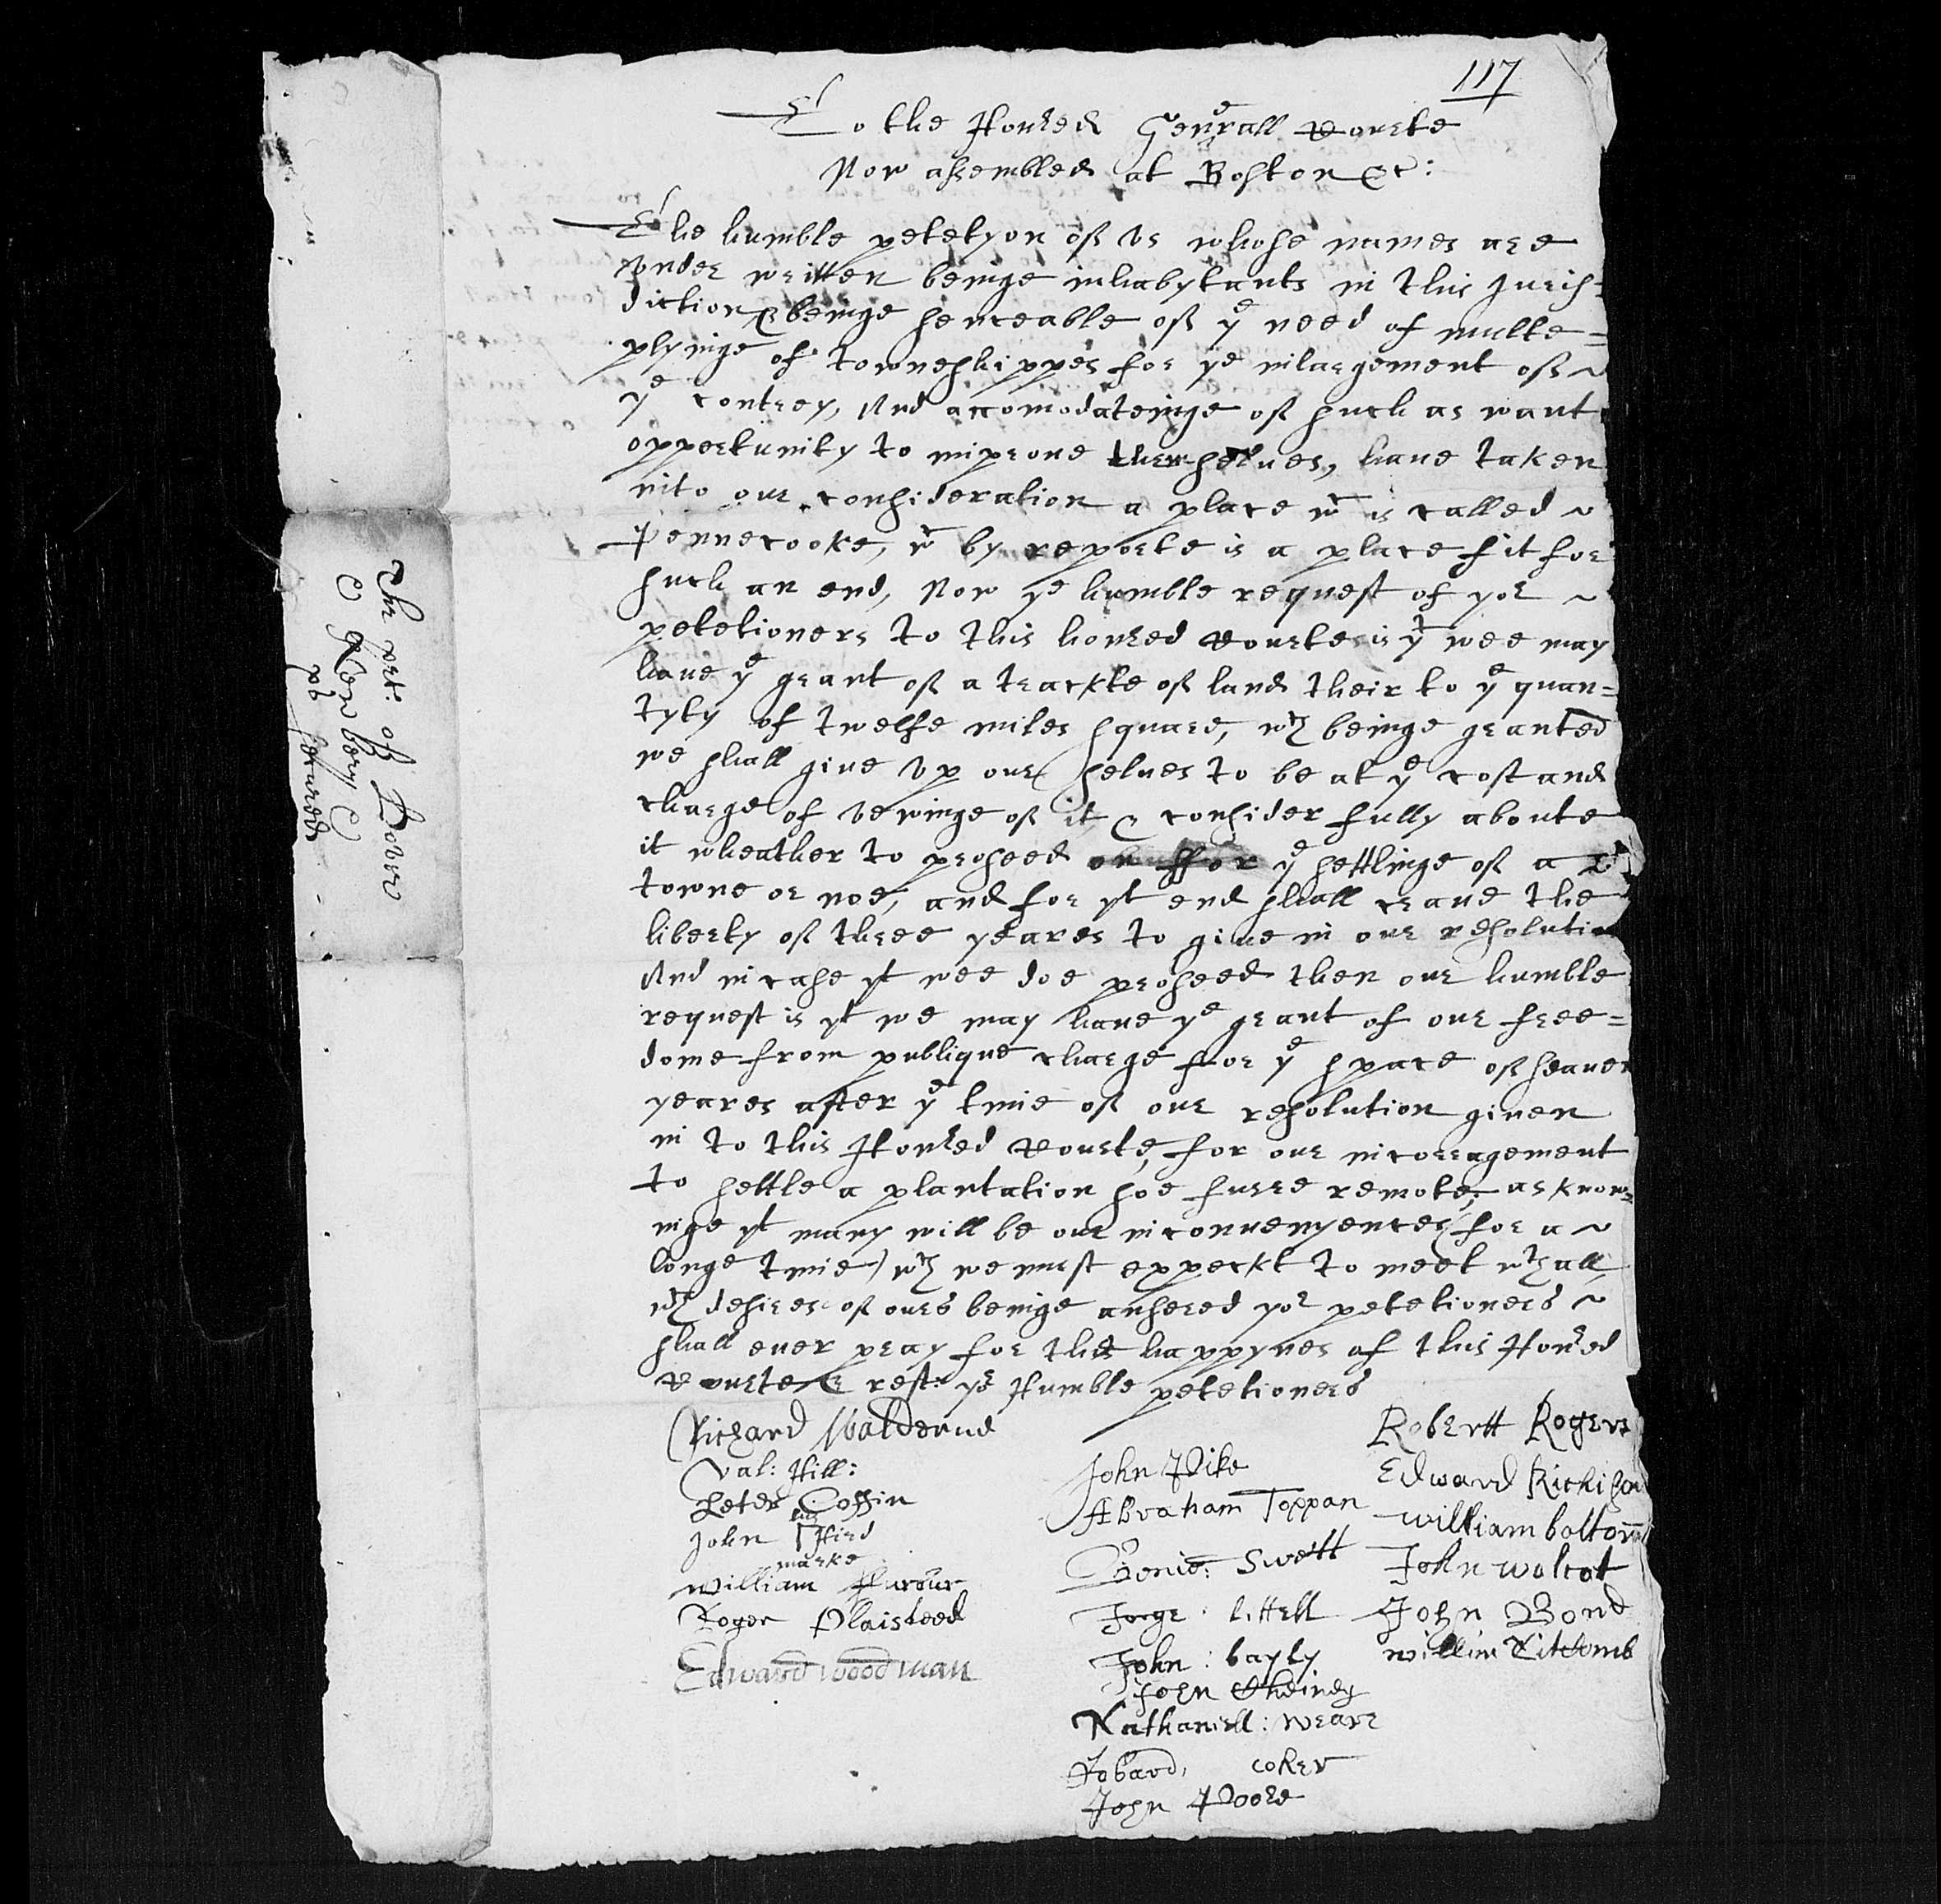 117
To the Honred Genrall Courte
Now assembled at Boston &c:
The humble petetyon off vs whose names are
vnder written beinge inhabytants in this Juris=
diction & beinge senceable off ye need of multe=
plyinge of towneshippes for ye inlargement off ~
ye contrey, And accomodateinge off such as want
oppertunity to improue themselues, haue taken
into our consideration a place wch is called ~
Pennecooke, wch by reporte is a place fit for
such an end, Now ye humble request of yor ~
petetioners to this honred Courte is yt wee may
haue ye grant off a trackte off land their to ye quan=
tyty of twelfe miles square, wch beinge granted
we shall giue vp our selues to be at ye cost and
charge of vewinge off it & consider fully aboute
it wheather to proseed on ffor ye settlinge off a
towne or noe, and for yt end shall craue the
liberty off three yeares to giue in our resolution
And in case yt wee doe proseed then our humble
request is yt we may haue ye grant of our free=
dome from publique charge for ye space off seauen
yeares after ye time off our resolution giuen
in to this Honred Courte, for our incorragement
to settle a plantation soe furre remote, as know=
inge yt many will be our inconuenyences (for a ~
longe time) wch we must exspeckt to meet wth all,
wch desires off ours beinge ansered yor petetioners ~
shall euer pray for the happynes of this Honred
Courte & rest yr Humble petetioners
Richard Walderne
Val: Hill:
Peter Coffin
his
John Hird
marke
William Furbur
Roger Plaisteed
Edward Woodman
John Pike
Abraham Toppan
Benie: Swett
Jorge littell
John: bayly
John
Nathaniell: weare
Robard, coker
John Poore
Robertt Rogers
Edward Richison
william boltonn
John wolcot
John Bond
William Titcomb
The peti: of Dover
& Newbery &
pb. seuered